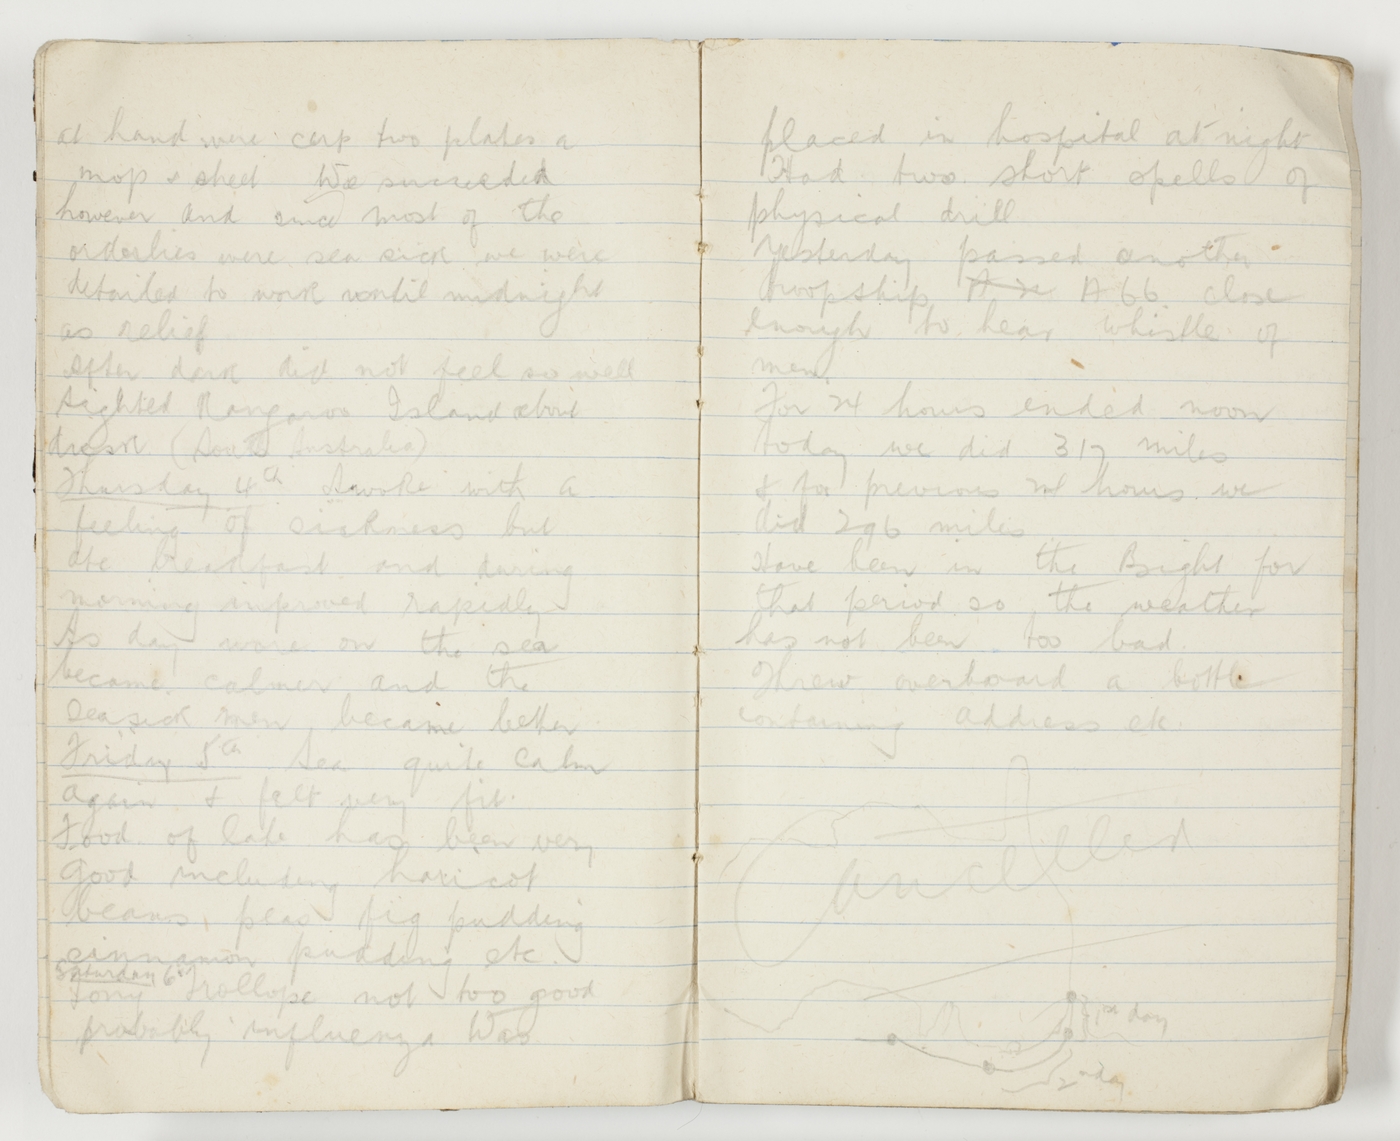 at hand were cup two plates a
mop & sheet We succeeded
however and since most of the
orderlies were sea sick we were
detailed to work until midnight
as relief
After dark did not feel so well
Sighted Kangaroo Island about
dusk (South Australia)
Thursday 4th Awoke with a
feeling of sickness but
ate breakfast and during
morning improved rapidly
As day wore on the sea
became calmer and the
seasick men became better
Friday 5th Sea quite calm
again & felt very fit.
Food of late has been very
good including haricot
beans peas fig pudding
cinnamon pudding etc.
Saturday 6th
Tony Trollope not too good
probably influenza Was
placed in hospital at night
Had two short spells of
physical drill
Yesterday passed another
troopship A 66 close
enough to hear whistle of
men.
For 24 hours ended noon
today we did 317 miles
& for previous 24 hours we
did 296 miles
Have been in the Bight for
that period so the weather
has not been too bad.
Threw overboard a bottle
containing address etc.
Cancelled
1st day
2nd day